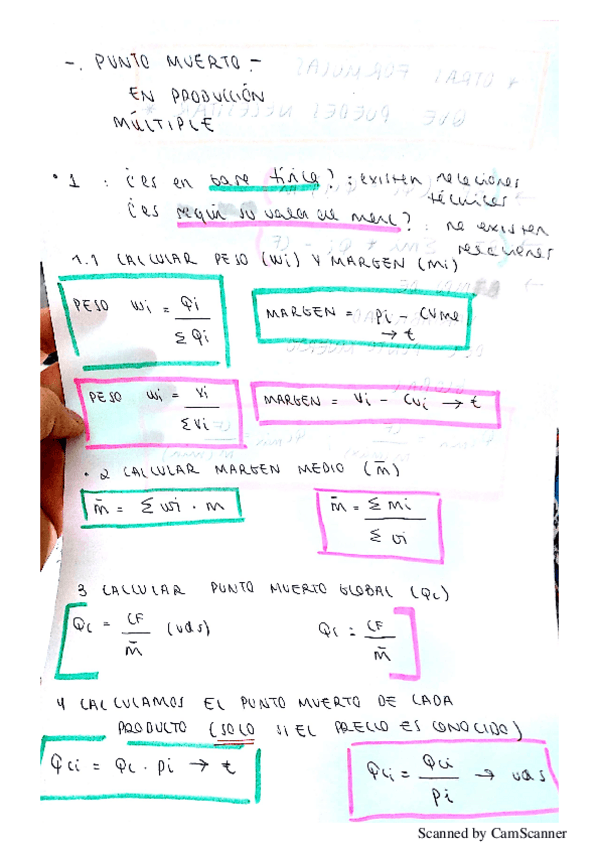 -. PUNTO MUERTO.-
EN PRODUCCIÓN
MÚLTIPLE
• 1 : ¿es en base física? : existen relaciones
técnicas
¿es según su valor de merc? : no existen
relaciones
1.1 CALCULAR PESO (Wi) Y MARGEN (mi)
PESO Wi = Qi / ΣQi
MARGEN = Pi - CVMe → €
PESO Wi = Vi / ΣVi
MARGEN = Vi - CVi → €
• 2 CALCULAR MARGEN MEDIO (m̄)
m̄ = Σ wi · m
m̄ = Σ mi / Σ vi
3 CALCULAR PUNTO MUERTO GLOBAL (Qc)
Qc = CF / m̄ (uds)
Qc = CF / m̄
4 CALCULAMOS EL PUNTO MUERTO DE CADA
PRODUCTO (SOLO SI EL PRECIO ES CONOCIDO)
Qci = Qc · Pi → €
Qci = Qci / Pi → uds
Scanned by CamScanner